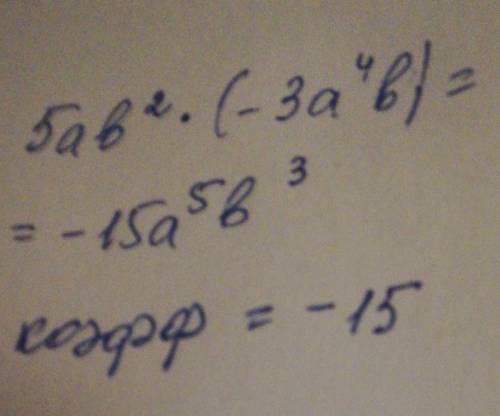 5ab²·(-3a⁴b)=
= -15a⁵b³
коэфф = -15